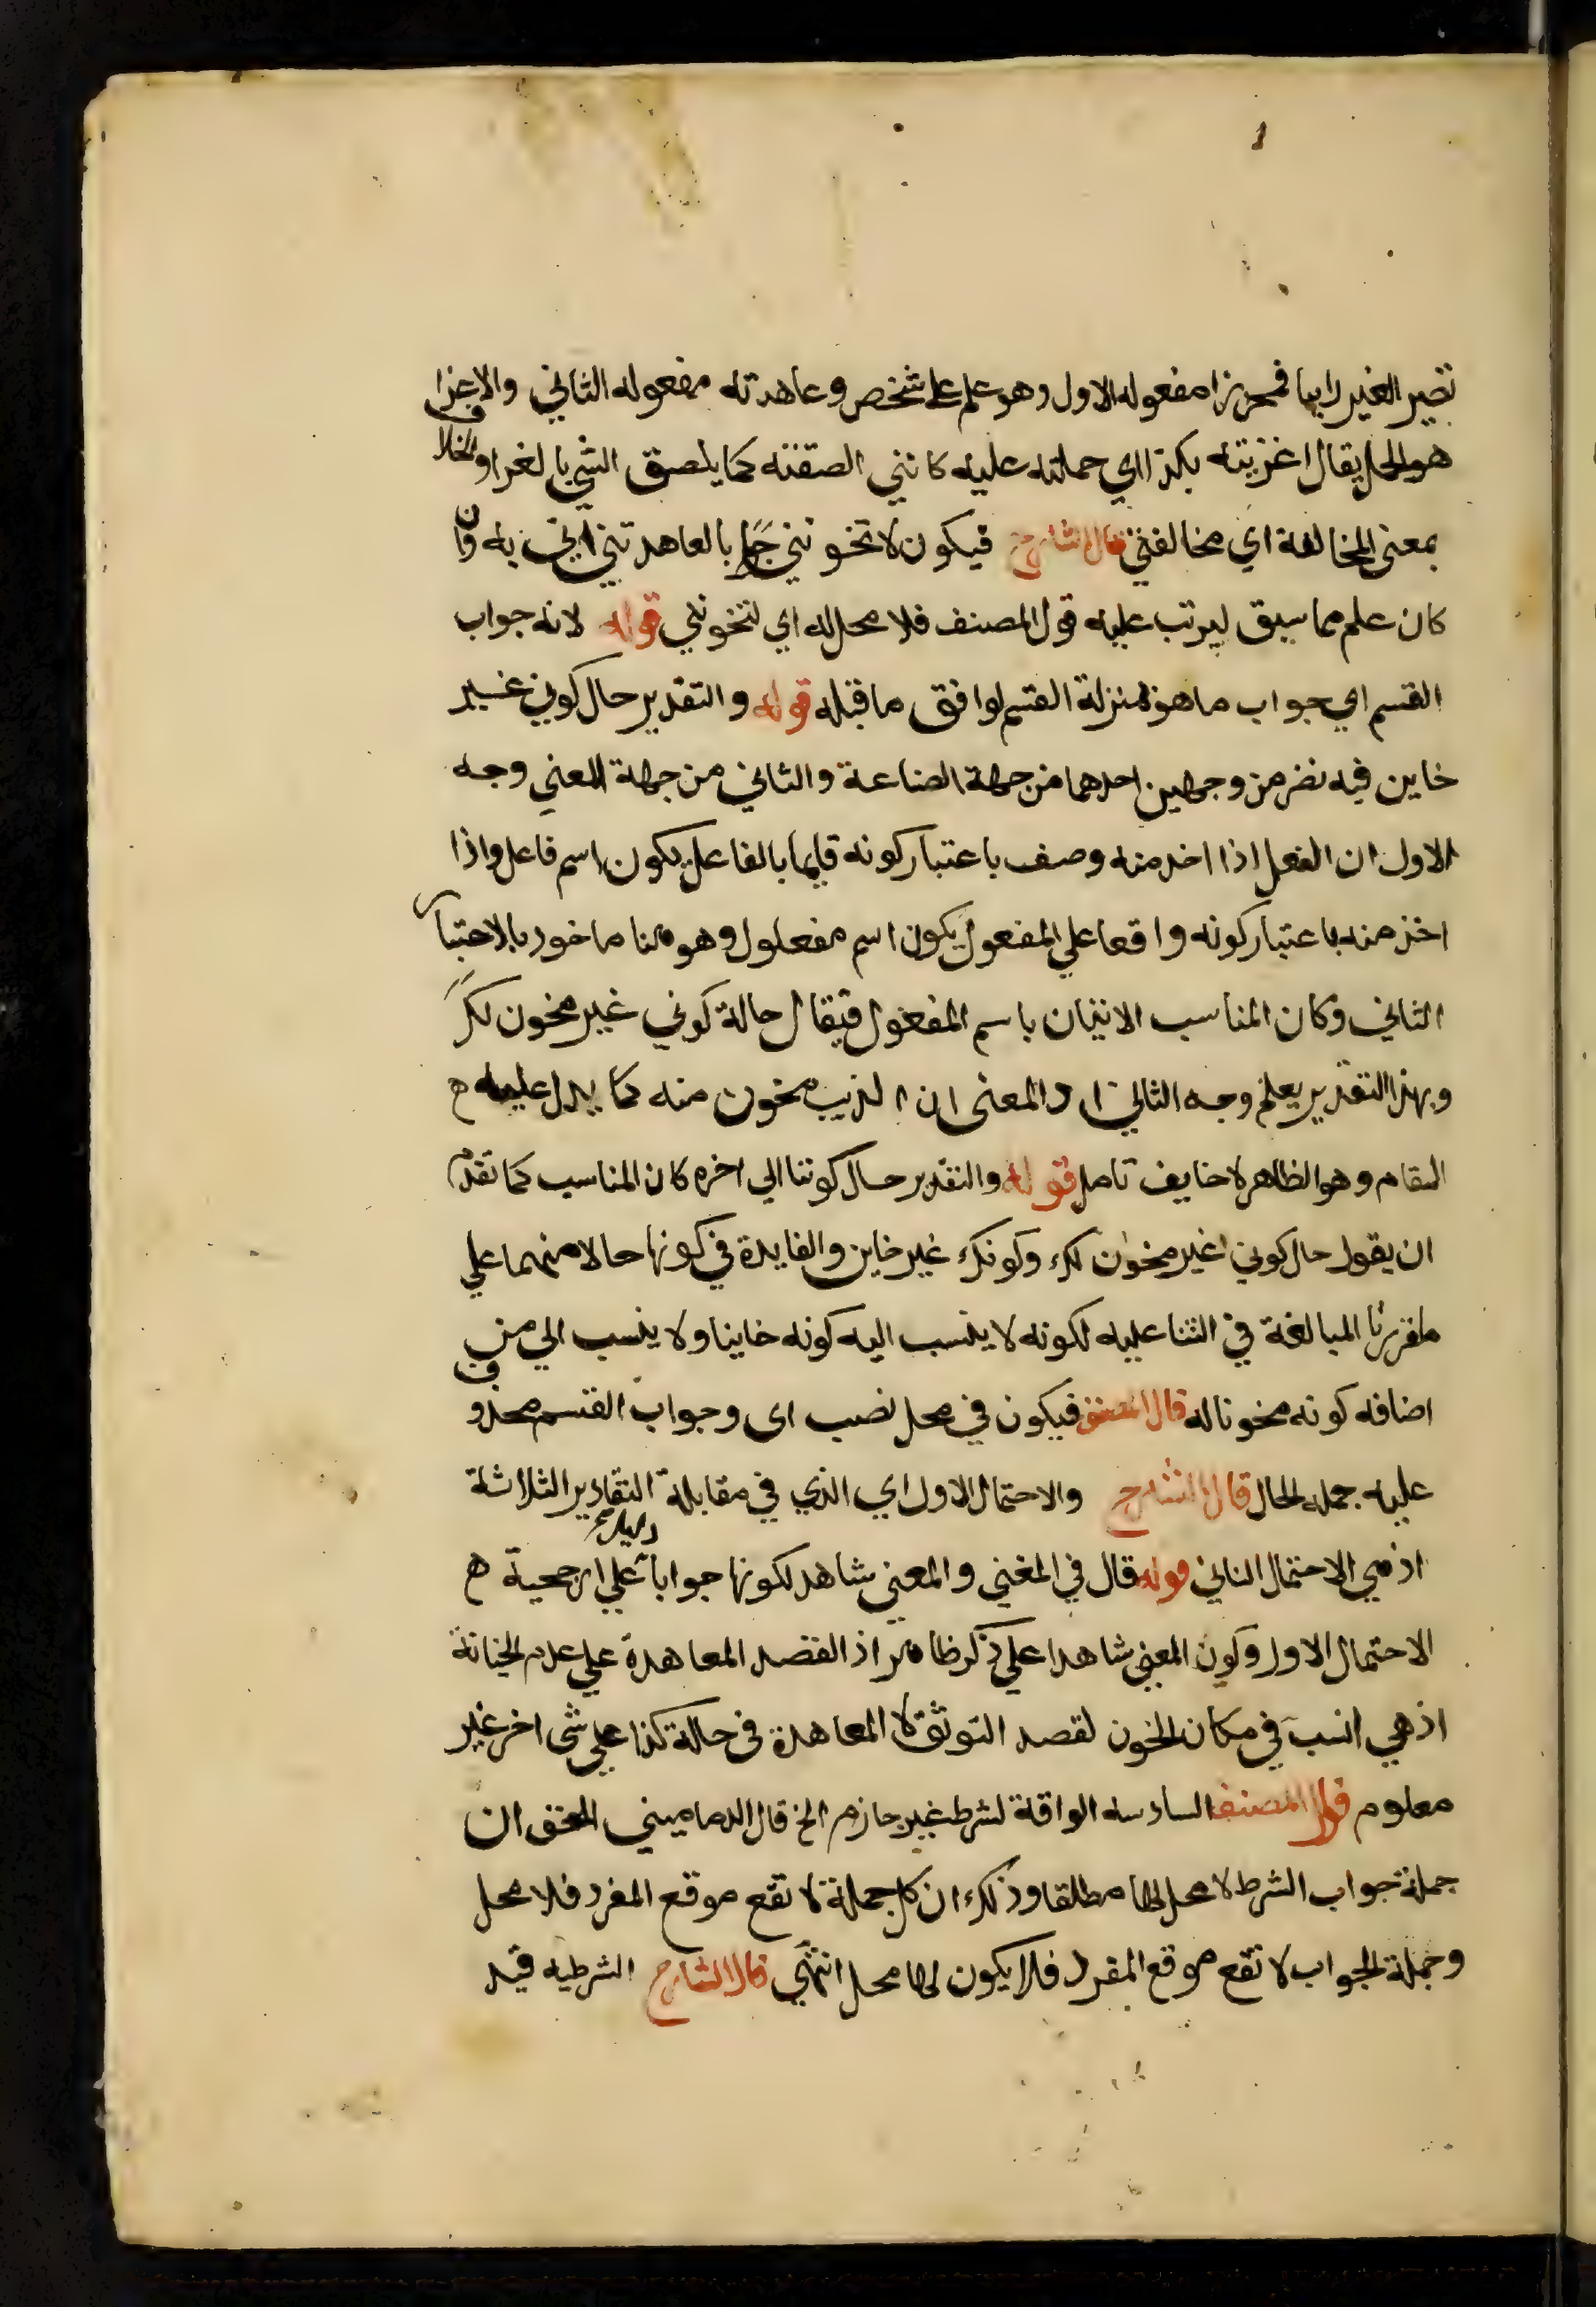 تصير الغير رابيا فمحرزا مفعوله الاول وهو علم على شخص وعاهدته مفعوله الثاني والاغرا
هو الحمل يقال اغزيته بكذا اي حملته عليه كانني الصقته كما يلصق الشي بالغرا والخلاف
بمعنى المخالفة اي مخالفتي قال الشارح فيكون لا تخونني جوابا لعاهدتني اي به وان
كان علم مما سبق ليرتب عليه قول المصنف فلا محل له اي لتخونني قوله لانه جواب
القسم اي جواب ما هو بمنزلة القسم لوافق ما قبله قوله والتقدير حال كوني غير
خاين فيه نضر من وجهين احدهما من جهة الصناعة والثاني من جهة المعني وجه
الاول ان الفعل اذا اخد منه وصف باعتبار كونه قايما بالفاعل يكون اسم فاعل واذا
اخذ منه باعتبار كونه واقعا علي المفعول يكون اسم مفعلول وهو هنا ماخود بالاحتبار
الثاني وكان المناسب الاتيان باسم المفعول فيقال حالة كوني غير مخون لك
وبهذا التقدير يعلم وجه الثاني اد المعنى ان الذيب مخون منه كما يدل عليه ه
المقام وهو الظاهر لا خايف تامل قوله والتقدير حال كوننا الي اخره كان المناسب كما تقدم
ان يقول حال كوني غير مخون لك وكونك غير خاين والفايدة في كونها حالا منهما علي
ما قررنا المبالغة في الثنا عليه لكونه لا ينسب اليه كونه خاينا ولا ينسب الي من
اضافه كونه مخونا له قال المصنف فيكون في محل نصب اى وجواب القسم محذوف
عليه جمله الحال قال الشارح والاحتمال الاول اي الذي في مقابلة التقادير الثلاثة
اذ هي الاحتمال الثاني قوله قال في المغني والمعنى شاهد لكونها جوابا علي ارجحية ه
الاحتمال الاول وكون المعنى شاهدا علي ذكر ظاهر اذ القصد المعاهدة علي عدم الخيانة
اذ هي انسب في مكان الخون لقصد التوثق لا المعاهدة في حالة كذا علي شى اخر غير
معلوم قول المصنف السادسه الواقة لشرط غير جازم الخ قال الدماميني الحق ان
جملة جواب الشرط لا محل لها مطلقا وذلك ان كل جملة لا تقع موقع المفرد فلا محل
وجملة الجواب لا تقع موقع المفرد فلا يكون لها محل انتهى قال الشارح الشرطيه قيد